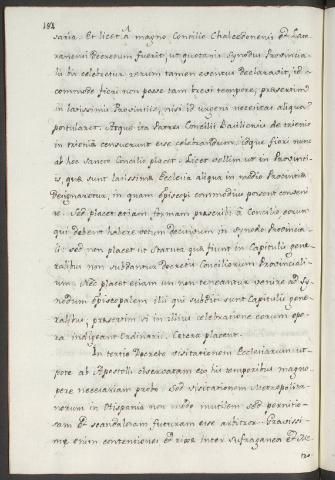 192
saria. Et licet à magno Concilio Chalcedonensi et Late
ranensi Decretum fuerit, ut quotanis Synodus Provincia
lis bis celebretur rerum tamen eventus declaravit, id
commode fieri non posse tam brevi tempore, præsertim
in latissimis Provintiis, nisi id urgens necessitas aliqua
postularet. Atque ita Patres Concilii Basiliensis de trienio
in trienium censuerunt esse celebrandum, idque fieri nunc
ab hoc sancto Concilio placet. Licet vellim ut in Provinti
is, quæ sunt latissimæ Ecclesia aliqua in medio Provintiæ
designaretur, in quam Episcopi commodius possent conveni
re. Sed placet etiam, formam præscribi à Concilio eorum
qui debent habere votum decisivum in Synodo Provincia
li: sed non placet ut Statuta quæ fiunt in Capitulis gene
ralibus non subdantur Decretis Conciliorum Provinciali
um. Nec placet etiam ut non teneantur venire ad Sy
nodum Episcopalem illi qui subditi sunt Capitulis gene
ralibus, præsertim si in illius celebratione eorum ope
ra indigeant Ordinarii. Cetera placent.
In tertio Decreto visitationem Ecclesiarum ut
pote ab Apostolis observatam eo his temporibus magno
pere necessariam probo. Sed visitationem Metropolita
norum in Hispania non modo inutilem sed pernitio
sam et scandalosam futuram esse arbitror. Gravissi
mæ enim contentiones et rixæ inter sufraganea et Me
tro